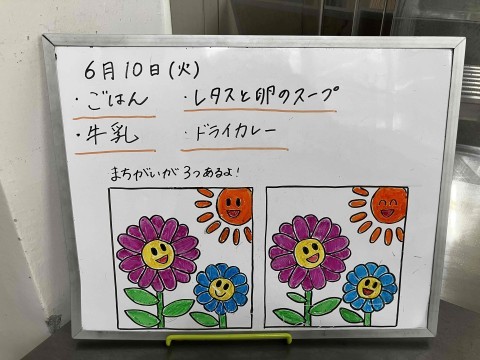 6月10日(火)
・ごはん ・レタスと卵のスープ
・牛乳 ・ドライカレー
まちがいが3つあるよ!